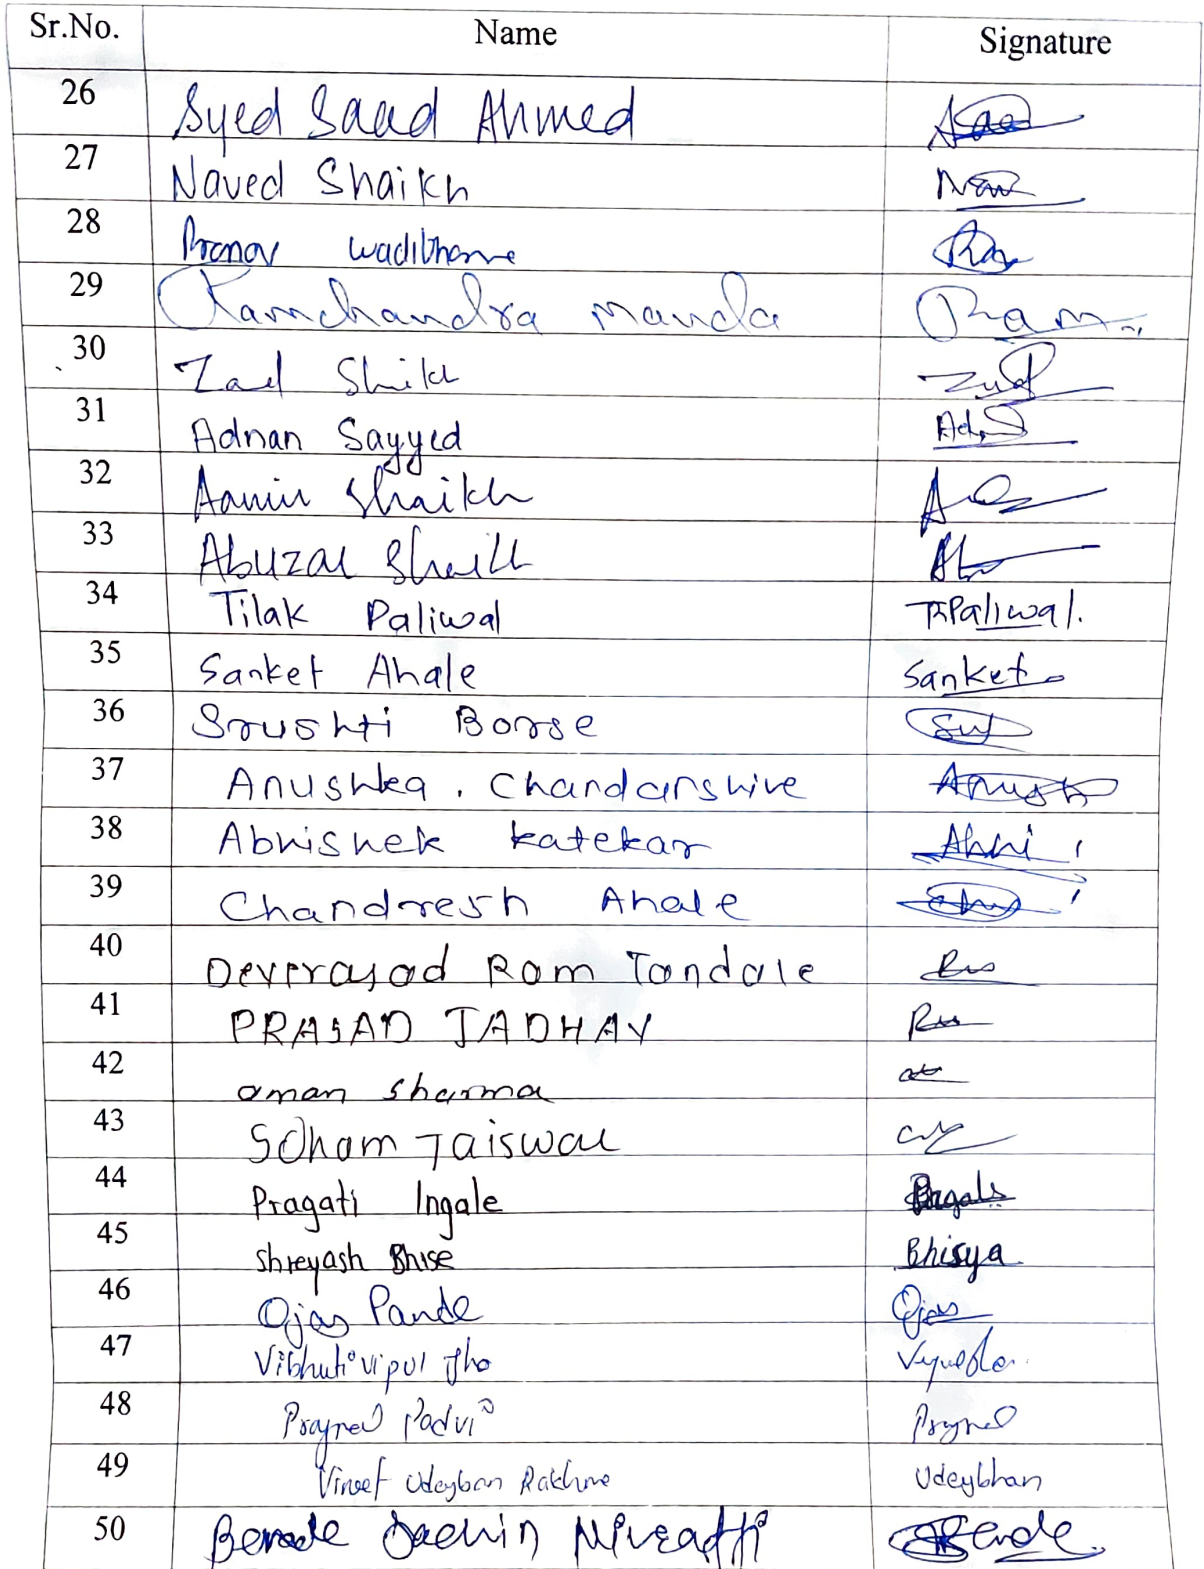 Sr.No. Name Signature
26 Syed Saad Ahmed Saad
27 Naved Shaikh Nav
28 Pranav
29 Ramchandra Manda Ram
30 Zad Shikh
31 Adnan Sayyed
32 Aamir Shaikh
33 Abuzar Shaikh
34 Tilak Paliwal T.Paliwal.
35 Sanket Ahale Sanket
36 Srushti Borse
37 Anushka . Chandanshive Anush
38 Abhishek Katekar Abhi
39 Chandresh Ahale
40 Devprasad Ram Tandale
41 PRASAD JADHAV
42 aman sharma
43 Soham Jaiswal
44 Pragati Ingale
45 Shreyash Bhise Bhisya
46 Ojas Pande Ojas
47 Vibhuti vipul Jha
48 Prajnel Padvi Prajnel
49 Vineet Udeybhan Rakhme Udeybhan
50 Berade Sachin Nivratti